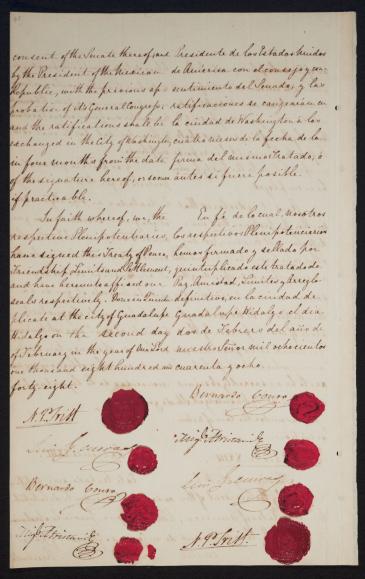 consent of the Senate thereof; and
by the President of the Mexican
Republic, with the previous ap-
probation of its General Congress;
and the ratifications shall be
exchanged in the City of Washington,
in four months from the date
of the signature hereof, or sooner
if practicable.
In faith whereof, we, the
respective Plenipotentiaries,
have signed this Treaty of Peace,
Friendship, Limits and Settlement,
and have hereunto affixed our
seals respectively. Done in Quin-
tuplicate at the city of Guadalupe
Hidalgo on the second day
of February in the year of our Lord
one thousand eight hundred and
forty eight.
N. P. Trist
Luis G. Cuevas
Bernardo Couto
Migl. Atristain
Presidente de los Estados Unidos
de America con el consejo y con-
sentimiento del Senado; y las
ratificaciones se cangearán en
la ciudad de Washington a los
cuatro meses de la fecha de la
firma del mismo Tratado, ó
antes si fuere posible.
En fé de lo cual, nosotros
los respectivos Plenipotenciarios
hemos firmado y sellado por
quintuplicado este tratado de
Paz, Amistad, Limites y Arreglo
definitivo, en la ciudad de
Guadalupe Hidalgo el dia
dos de Febrero del año de
nuestro Señor mil ochocientos
cuarenta y ocho.
Bernardo Couto
Migl. Atristain
Luis G. Cuevas
N. P. Trist.